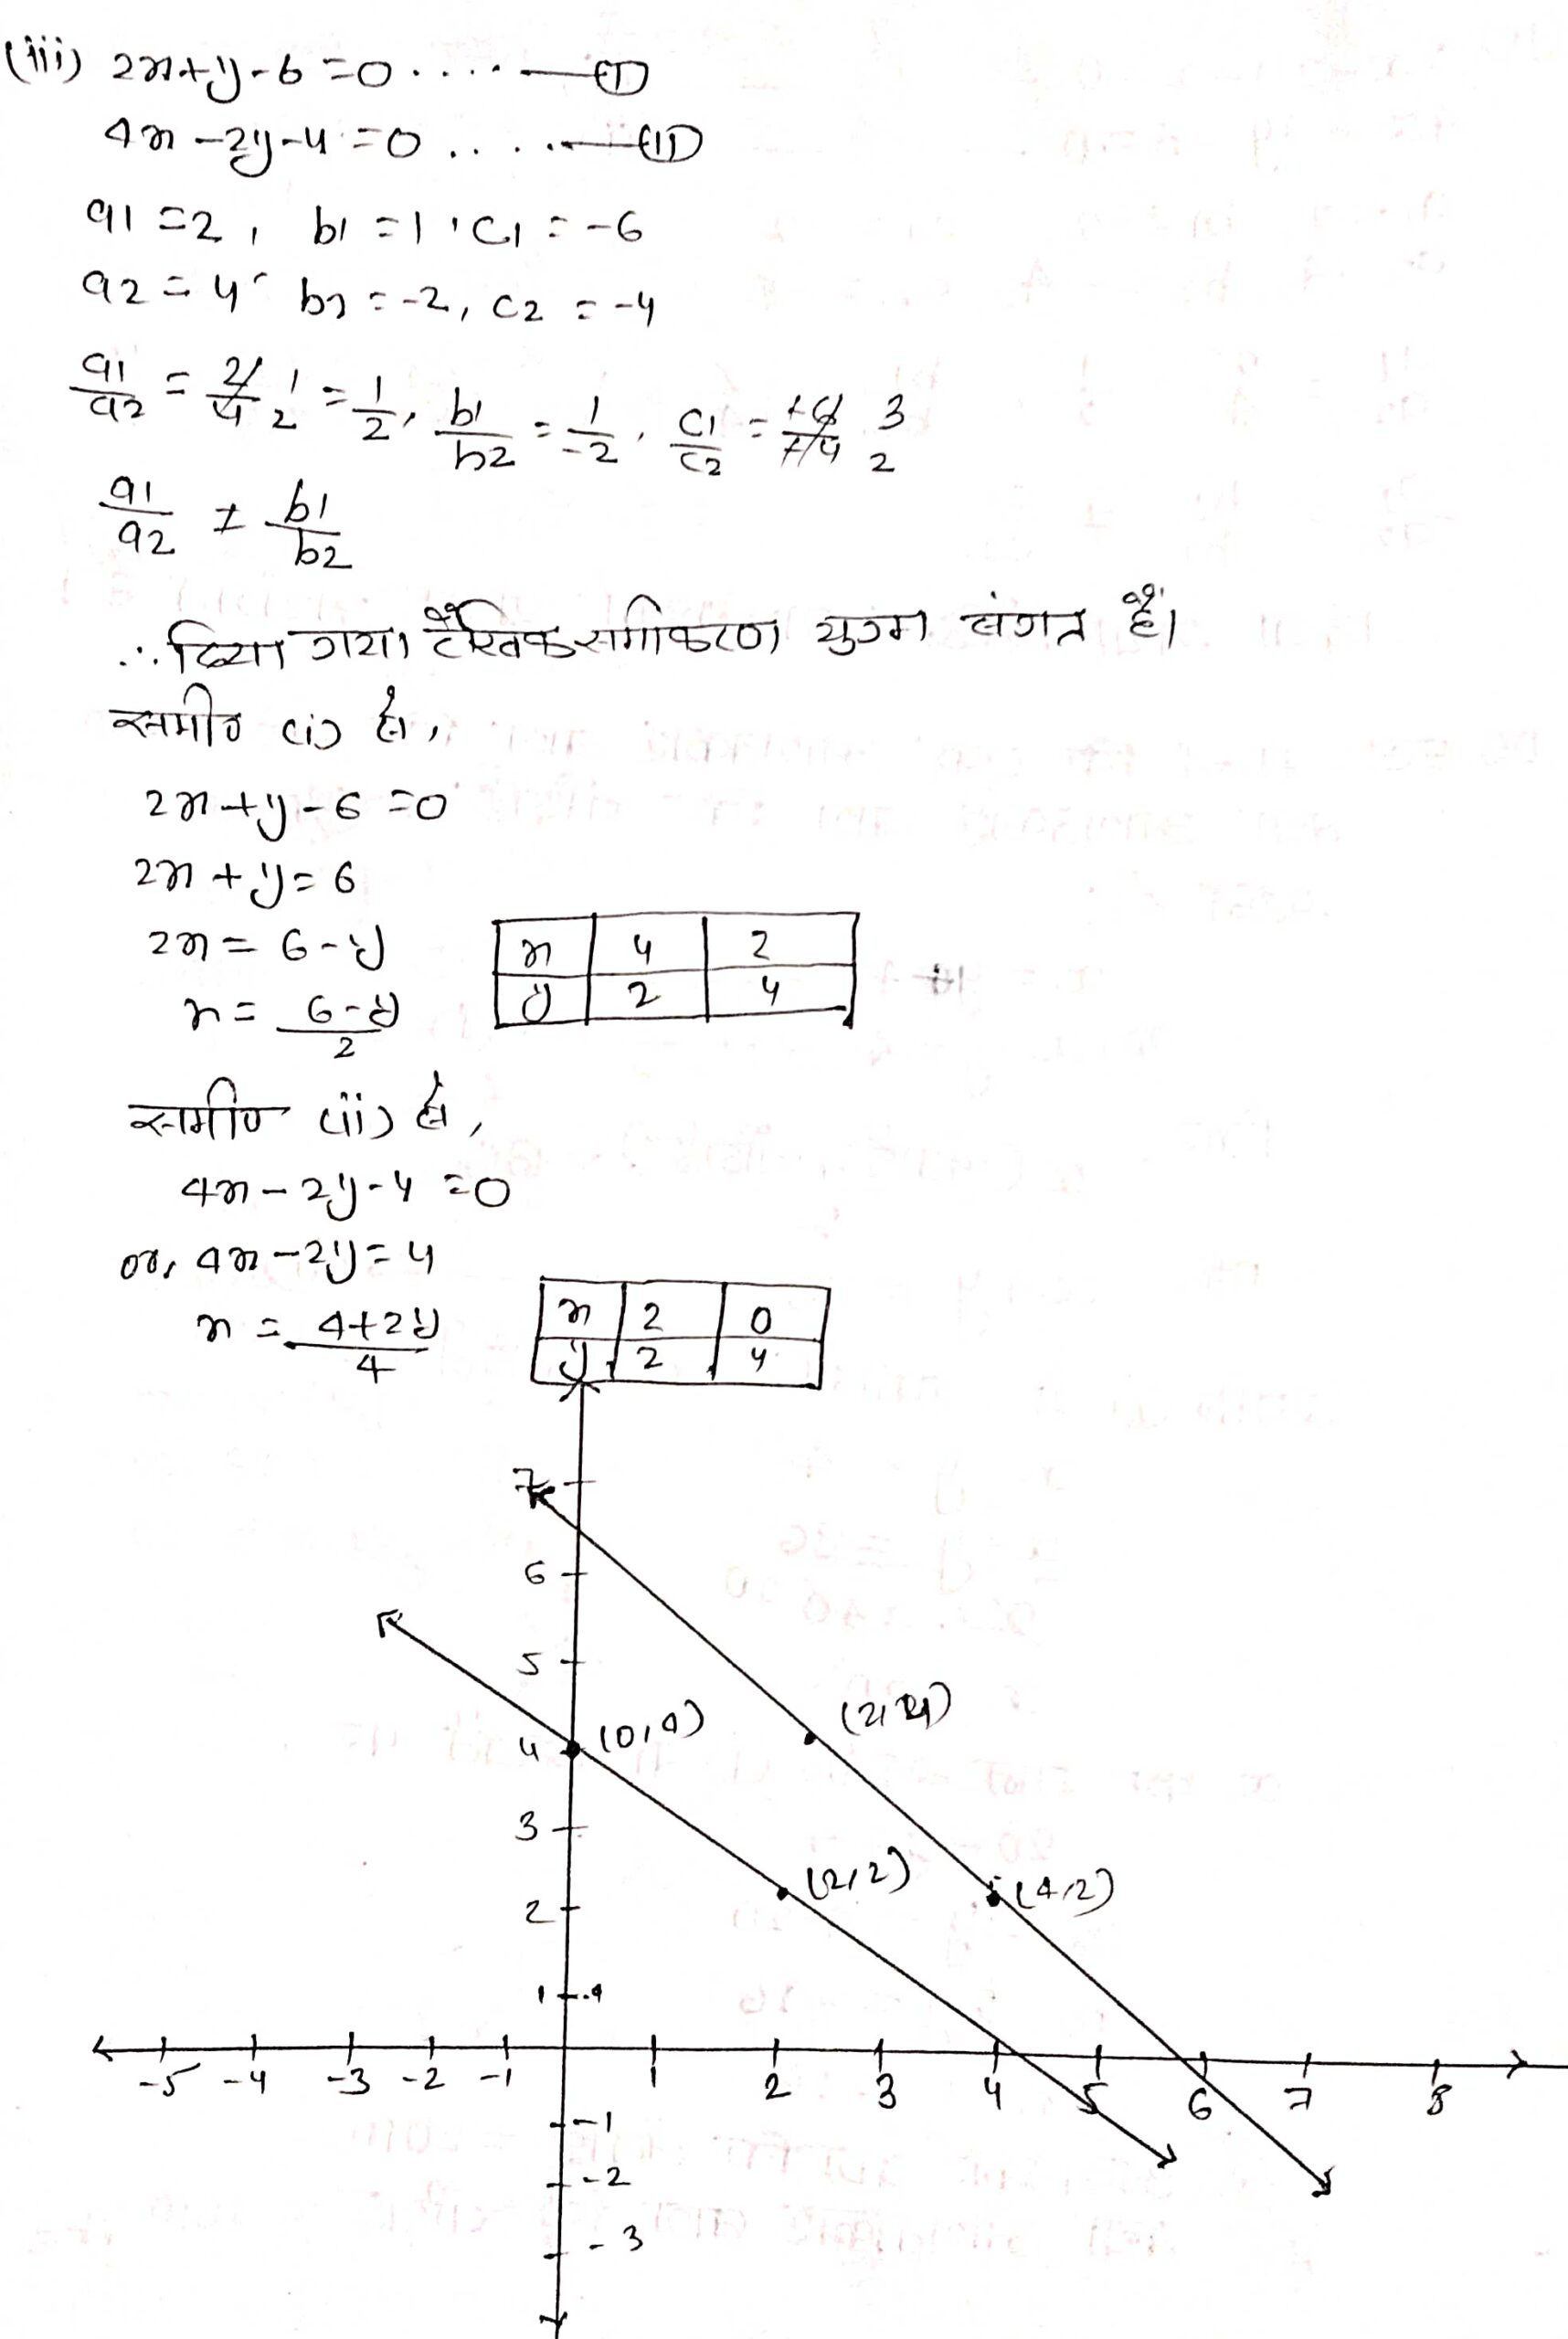 (iii) 2x+y-6=0 ..... — (I)
4x-2y-4=0 ..... — (II)
a1=2, b1=1, c1=-6
a2=4, b2=-2, c2=-4
a1/a2 = 2/4 1/2 = 1/2, b1/b2 = 1/-2, c1/c2 = -6/-4 3/2
a1/a2 ≠ b1/b2
∴ दिया गया रैखिक समीकरण युग्म संगत है।
समी० (i) से,
2x+y-6=0
2x+y=6
2x=6-y
x=6-y/2
x 4 2
y 2 4
समी० (ii) से,
4x-2y-4=0
or, 4x-2y=4
x=4+2y/4
x 2 0
y 2 4
7
6
5
(2,4)
4 (0,4)
3
(2,2) (4,2)
2
1
-5 -4 -3 -2 -1 1 2 3 4 5 6 7 8
-1
-2
-3